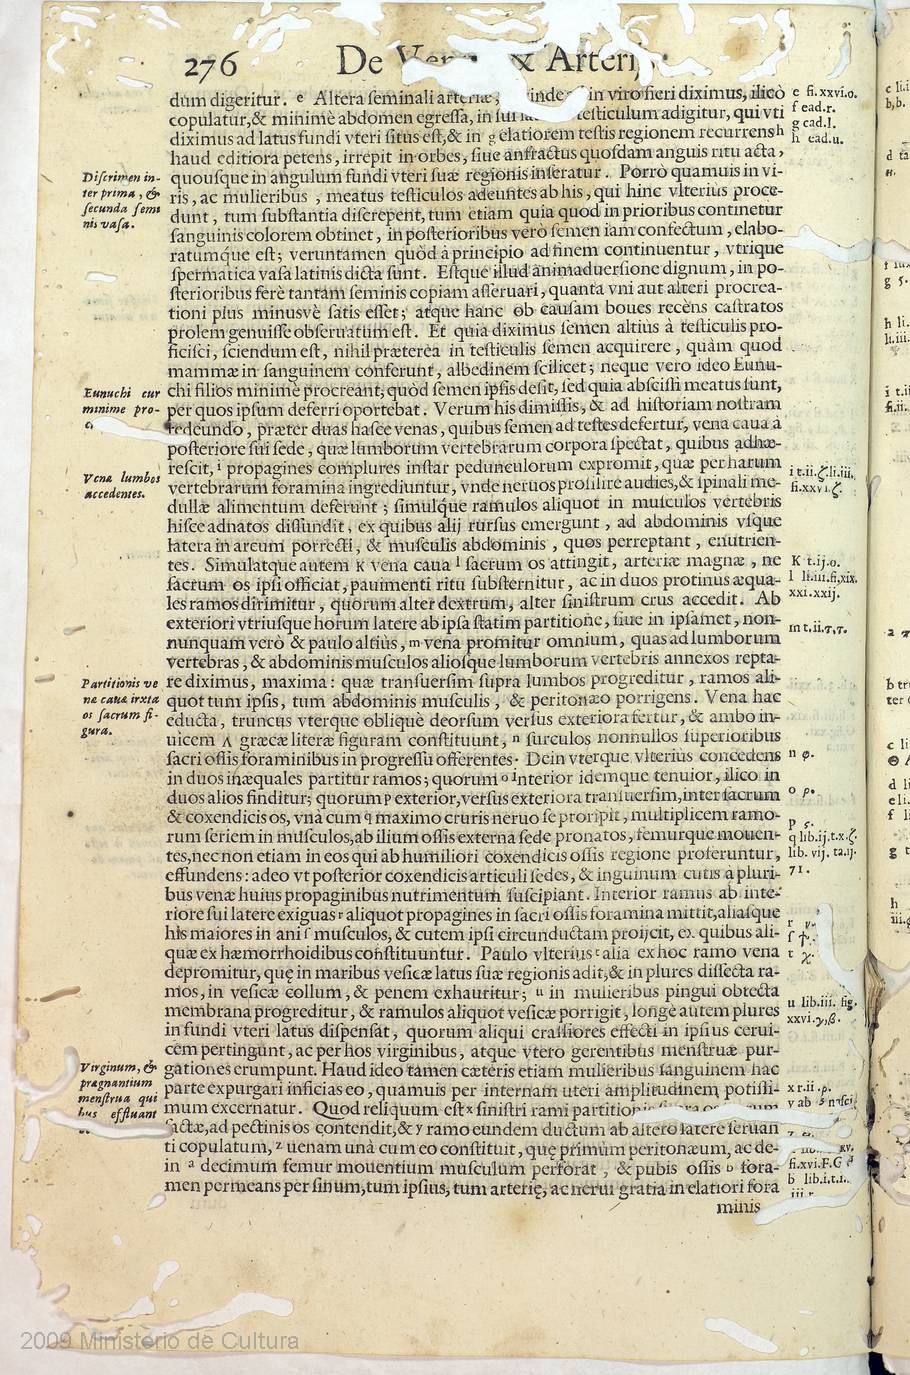 276 De Ven & Arterijs
dum digeritur. e Altera seminali arteriæ, inde in viro fieri diximus, ilico
copulatur, & minimè abdomen egressa, in sui testiculum adigitur, qui vti
diximus ad latus fundi vteri situs est, & in g elatiorem testis regionem recurrens h
haud editiora petens, irrepit in orbes, siue anfractus quosdam anguis ritu acta,
quousque in angulum fundi vteri suæ regionis inseratur. Porrò quamuis in vi-
ris, ac mulieribus, meatus testiculos adeuntes ab his, qui hinc vlterius proce-
dunt, tum substantia discrepent, tum etiam quia quod in prioribus continetur
sanguinis colorem obtinet, in posterioribus verò semen iam confectum, elabo-
ratumque est; veruntamen quòd à principio ad finem continuentur, vtrique
spermatica vasa latinis dicta sunt. Estque illud animaduersione dignum, in po-
sterioribus ferè tantam seminis copiam asseruari, quanta vni aut alteri procrea-
tioni plus minusvè satis esset; atque hanc ob causam boues recèns castratos
prolem genuisse obseruatum est. Et quia diximus semen altius à testiculis pro-
ficisci, sciendum est, nihil præterea in testiculis semen acquirere, quàm quod
mammæ in sanguinem conferunt, albedinem scilicet; neque vero ideo Eunu-
chi filios minimè procreant, quòd semen ipsis desit, sed quia abscissi meatus sunt,
per quos ipsum deferri oportebat. Verum his dimissis, & ad historiam nostram
redeundo, præter duas hasce venas, quibus semen ad testes defertur, vena caua à
posteriore sui sede, quæ lumborum vertebrarum corpora spectat, quibus adhæ-
rescit, i propagines complures instar pedunculorum expromit, quæ per harum
vertebrarum foramina ingrediuntur, vnde neruos prosilire audies, & spinali me-
dullæ alimentum deferunt; simulque ramulos aliquot in musculos vertebris
hisce adnatos diffundit, ex quibus alij rursus emergunt, ad abdominis vsque
latera in arcum porrecti, & musculis abdominis, quos perreptant, enutrien-
tes. Simulatque autem K vena caua l sacrum os attingit, arteriæ magnæ, ne
sacrum os ipsi officiat, pauimenti ritu substernitur, ac in duos protinus æqua-
les ramos dirimitur, quorum alter dextrum, alter sinistrum crus accedit. Ab
exteriori vtriusque horum latere ab ipsa statim partitione, siue in ipsamet, non-
nunquam verò & paulo altiùs, m vena promitur omnium, quas ad lumborum
vertebras, & abdominis musculos aliosque lumborum vertebris annexos repta-
re diximus, maxima: quæ transuersim supra lumbos progreditur, ramos ali-
quot tum ipsis, tum abdominis musculis, & peritonæo porrigens. Vena hac
educta, truncus vterque obliquè deorsum versus exteriora fertur, & ambo in-
uicem Λ græcæ literæ figuram constituunt, n surculos nonnullos superioribus
sacri ossis foraminibus in progressu offerentes. Dein vterque vlterius concedens
in duos inæquales partitur ramos; quorum o interior idemque tenuior, ilico in
duos alios finditur; quorum p exterior, versus exteriora transuersim, inter sacrum
& coxendicis os, vnà cum q maximo cruris neruo se proripit, multiplicem ramo-
rum seriem in musculos, ab ilium ossis externa sede pronatos, femurque mouen-
tes, nec non etiam in eos qui ab humiliori coxendicis ossis regione proferuntur,
effundens: adeo vt posterior coxendicis articuli sedes, & inguinum cutis à pluri-
bus venæ huius propaginibus nutrimentum suscipiant. Interior ramus ab inte-
riore sui latere exiguas r aliquot propagines in sacri ossis foramina mittit, aliasque
his maiores in ani s musculos, & cutem ipsi circunductam proijcit, ex quibus ali-
quæ ex hæmorrhoidibus constituuntur. Paulo vlterius t alia ex hoc ramo vena
depromitur, quę in maribus vesicæ latus suæ regionis adit, & in plures dissecta ra-
mos, in vesicæ collum, & penem exhauritur; u in mulieribus pingui obtecta
membrana progreditur, & ramulos aliquot vesicæ porrigit, longè autem plures
in fundi vteri latus dispensat, quorum aliqui crassiores effecti in ipsius cerui-
cem pertingunt, ac per hos virginibus, atque vtero gerentibus menstruæ pur-
gationes erumpunt. Haud ideo tamen cæteris etiam mulieribus sanguinem hac
parte expurgari inficias eo, quamuis per internam uteri amplitudinem potissi-
mum excernatur. Quod reliquum est x sinistri rami partitionis
factæ, ad pectinis os contendit, & y ramo eundem ductum ab altero latere seruan
ti copulatum, z uenam unà cum eo constituit, quę primùm peritonæum, ac de-
in a decimum femur mouentium musculum perforat, & pubis ossis b fora-
men permeans per sinum, tum ipsius, tum arterię, ac nerui gratia in elatiori fora
minis
Discrimen in-
ter prima, &
secunda semi
nis vasa.
Eunuchi cur
minime pro-
Venæ lumbos
accedentes.
Partitionis ve
næ cauæ iuxta
os sacrum fi-
gura.
Virginum, &
prægnantium
menstrua qui
bus effluant
e fi.xxvi.o.
f ead.r.
g ead.l.
h ead.u.
i t.ii.ζ.li.iii,
fi.xxvi.ζ.
K t.ij.o.
l li.iii.fi,xix.
xxi.xxij.
m t.ii.τ,τ.
n φ.
o ρ.
p ς.
q lib.ij.t.x.ζ.
lib. vij. ta.ij.
71.
t χ.
u lib.iii. fig.
xxvi.γ,β.
x r.ii.ρ.
fi.xvi.F.G
b lib.i.t.i.
2009 Ministerio de Cultura